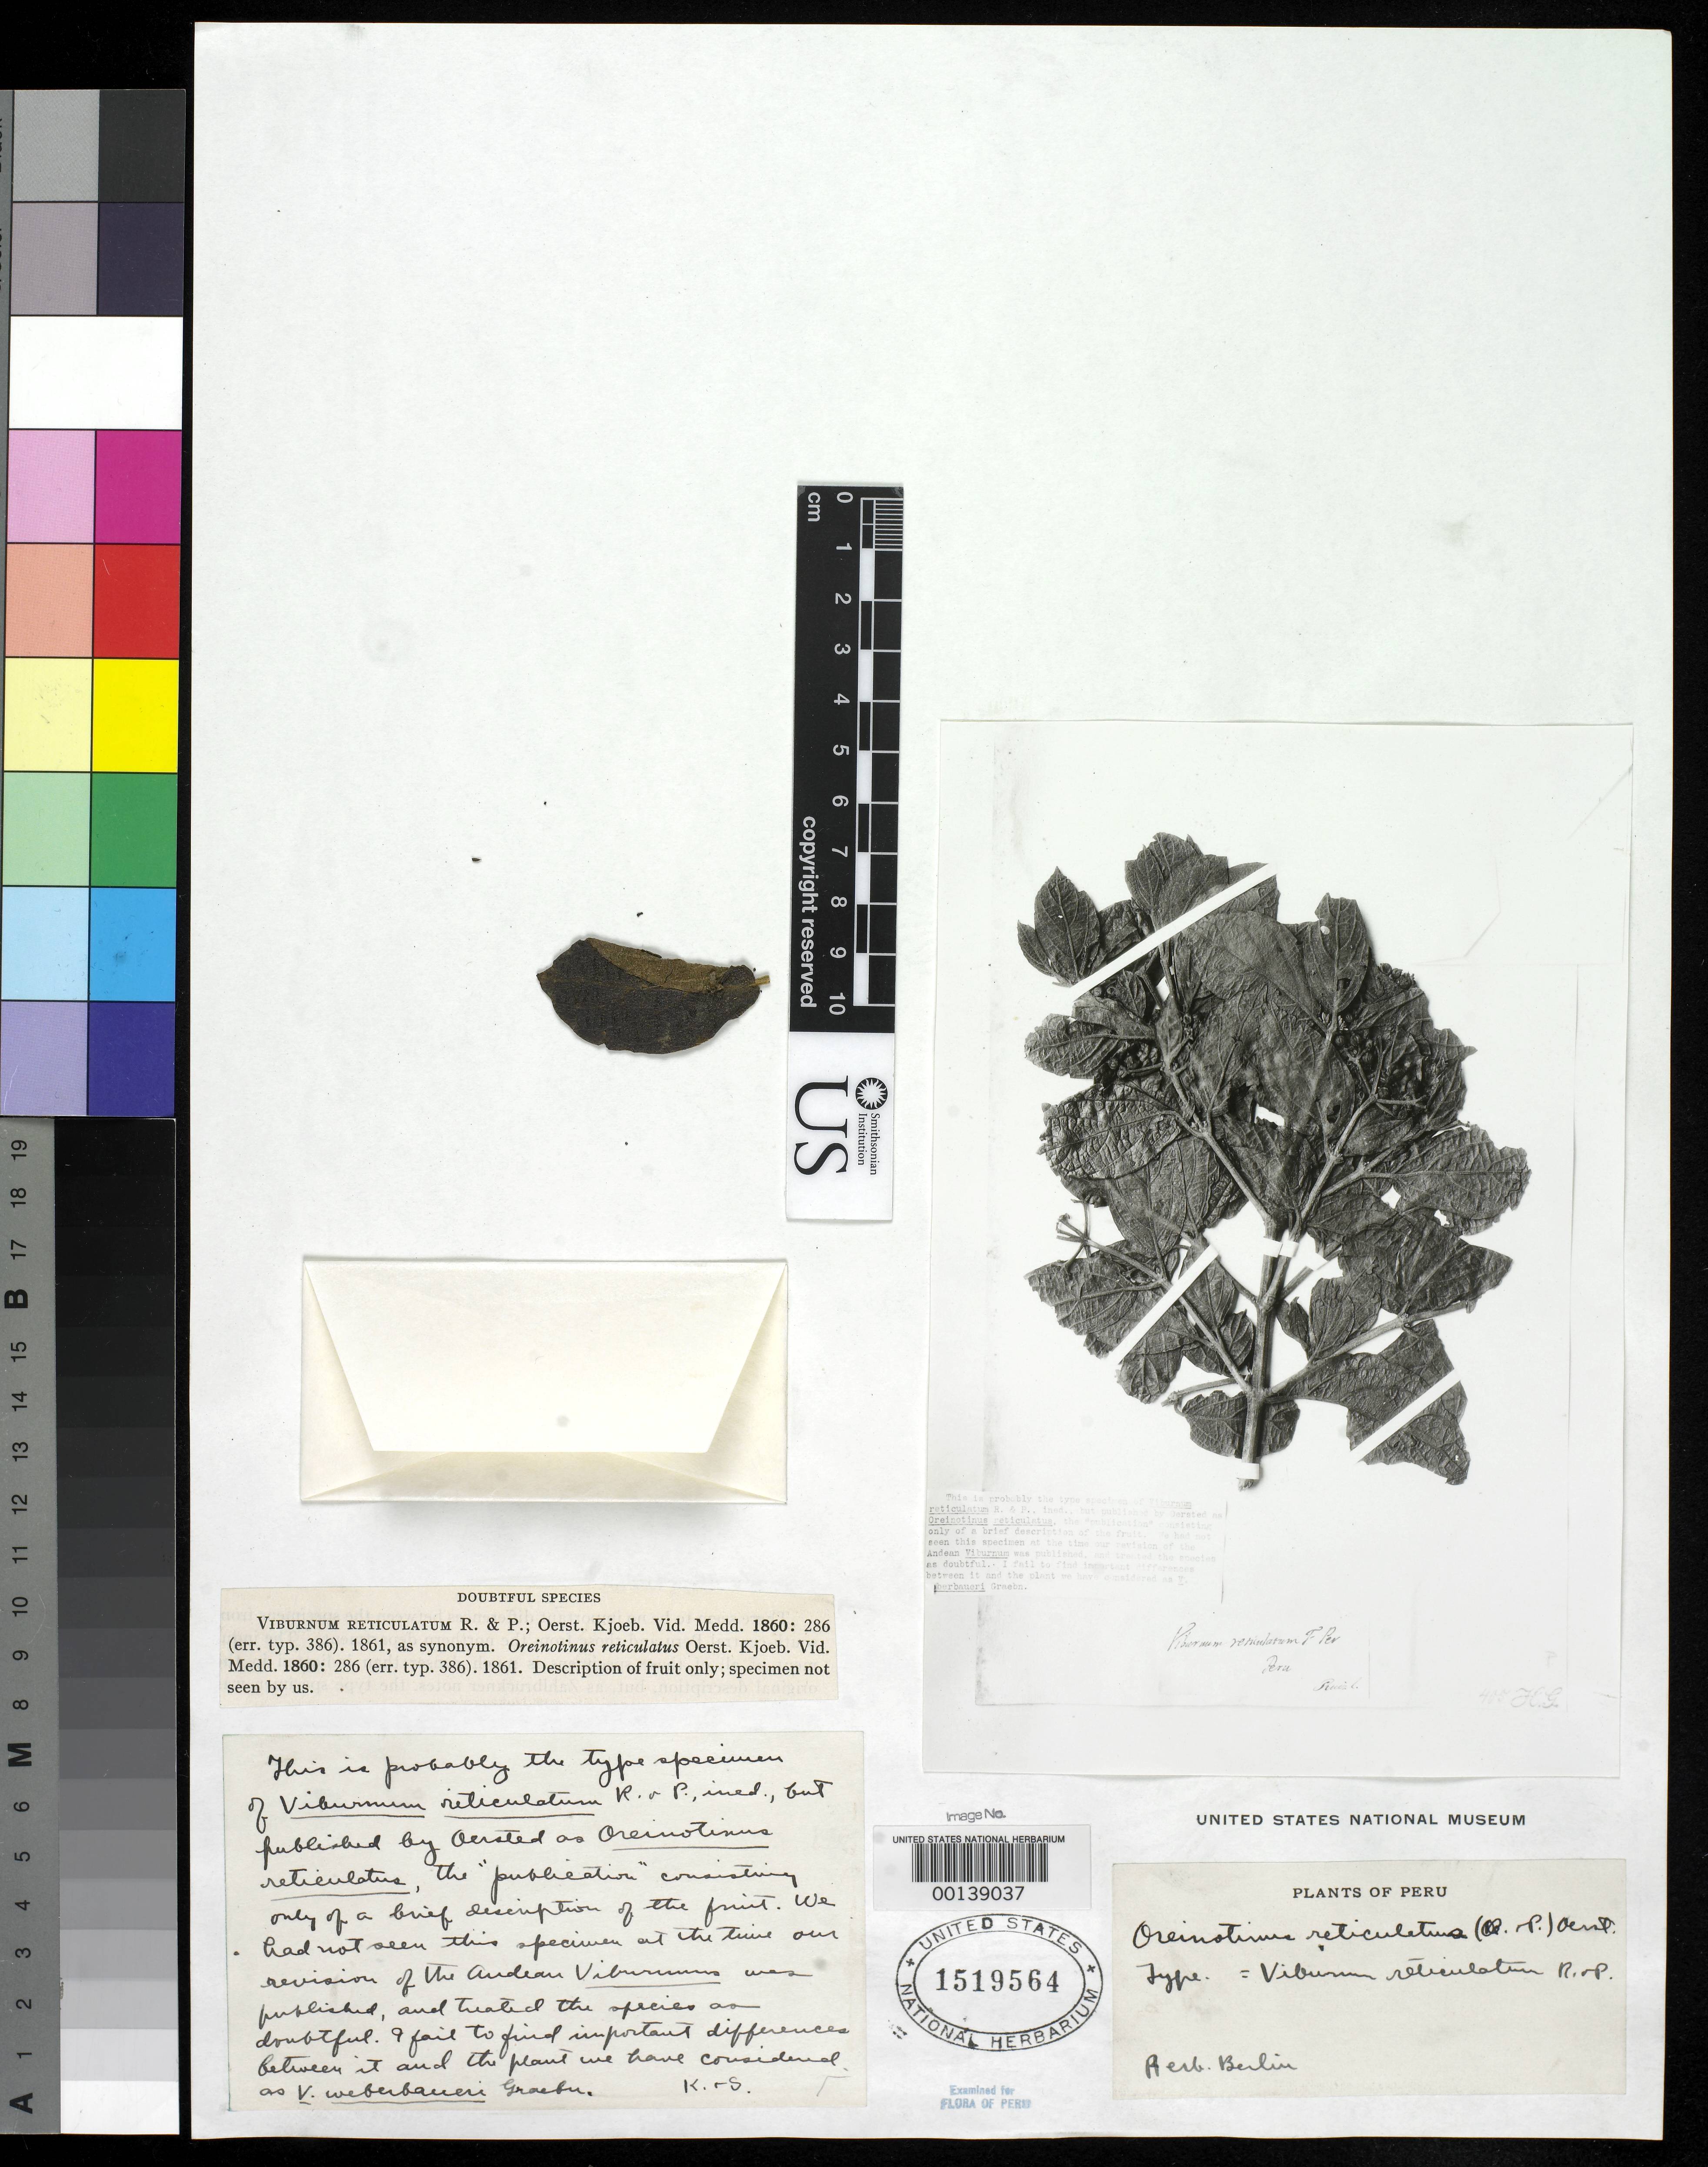 0 1 2 3 4 5 6 7 8 9 10
cm
copyright reserved
US
Smithsonian
Institution
A 1 2 3 4 5 6 M 8 9 10 11 12 13 14 15 B 17 18 19
This is probably the type specimen of Viburnum
reticulatum R. & P., ined., but published by Oersted as
Oreinotinus reticulatus, the "publication" consisting
only of a brief description of the fruit. We had not
seen this specimen at the time our revision of the
Andean Viburnum was published, and treated the species
as doubtful. I fail to find important differences
between it and the plant we have considered as V.
Graebn.
Viburnum reticulatum F. Per
Peru
Ruiz l.
H.G.
DOUBTFUL SPECIES
VIBURNUM RETICULATUM R. & P.; Oerst. Kjoeb. Vid. Medd. 1860: 286
(err. typ. 386). 1861, as synonym. Oreinotinus reticulatus Oerst. Kjoeb. Vid.
Medd. 1860: 286 (err. typ. 386). 1861. Description of fruit only; specimen not
seen by us.
This is probably the type specimen
of Viburnum reticulatum R. & P., ined., but
published by Oersted as Oreinotinus
reticulatus, the "publication" consisting
only of a brief description of the fruit. We
had not seen this specimen at the time our
revision of the Andean Viburnums was
published, and treated the species as
doubtful. I fail to find important differences
between it and the plant we have considered
as V. weberbaueri Graebn. K. & S.
Image No.
UNITED STATES NATIONAL HERBARIUM
00139037
UNITED STATES
1519564
NATIONAL HERBARIUM
Examined for
FLORA OF PERU
UNITED STATES NATIONAL MUSEUM
PLANTS OF PERU
Oreinotinus reticulatus (R. & P.) Oerst.
Type. = Viburnum reticulatum R. & P.
Herb. Berlin